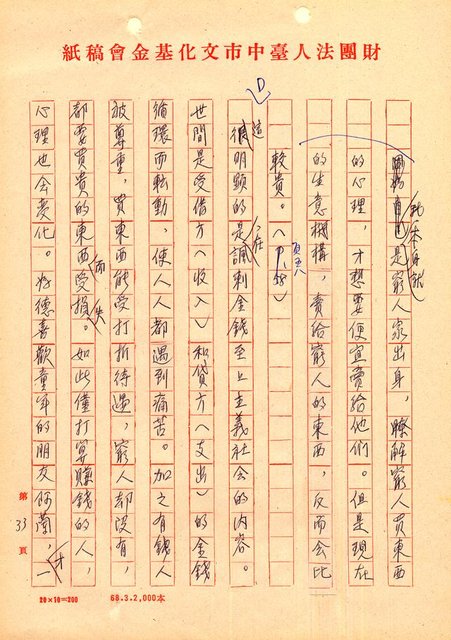 財團法人臺中市文化基金會稿紙
他本身就是窮人家出身，瞭解窮人買東西
的心理，才想要便宜賣給他們。但是現在
的生意機構，賣給窮人的東西，反而會比
較貴。（頁58）
這很明顯的是在諷刺金錢至上主義社會的內容。
世間是受借方（收入）和貸方（支出）的金錢
循環而転動，使人人都遇到痛苦。加之有錢人
被尊重，買東西能受打折待遇，窮人却沒有，
都要買貴的東西而受損失。如此僅打算賺錢的人，
心理也会変化。好德喜歡童軍的朋友阿蘭，才一
第33頁
20×10=200
68.3.2,000本